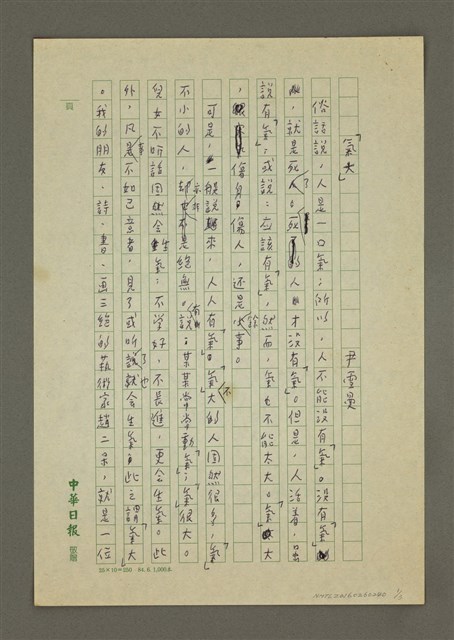 「氣大」
尹雪曼
俗話說，人是一口氣；所以，人不能沒有「氣」。沒有「氣」
，就是死人。死的人才沒有「氣」。但是，人活着，
說有「氣」；或說：应該有「氣」，然而，「氣」也不能太大。「氣」大
，傷身傷人，还是小事。
可是，一般說來，人人有「氣」。「氣」大的人固然很多，「氣」
不小的人，却也不是絕無。說：某某常常動「氣」；「氣」很大。
兒女不听話固然会生氣；不学好，不長進，更会生氣。此
外，凡是不如己意者，見了或听說了就也会生氣；此之謂「氣大」
。我的朋友，詩、書、画三絕的藝術家趙二呆，就是一位
中華日報
25×10=250 64.6.1,000本